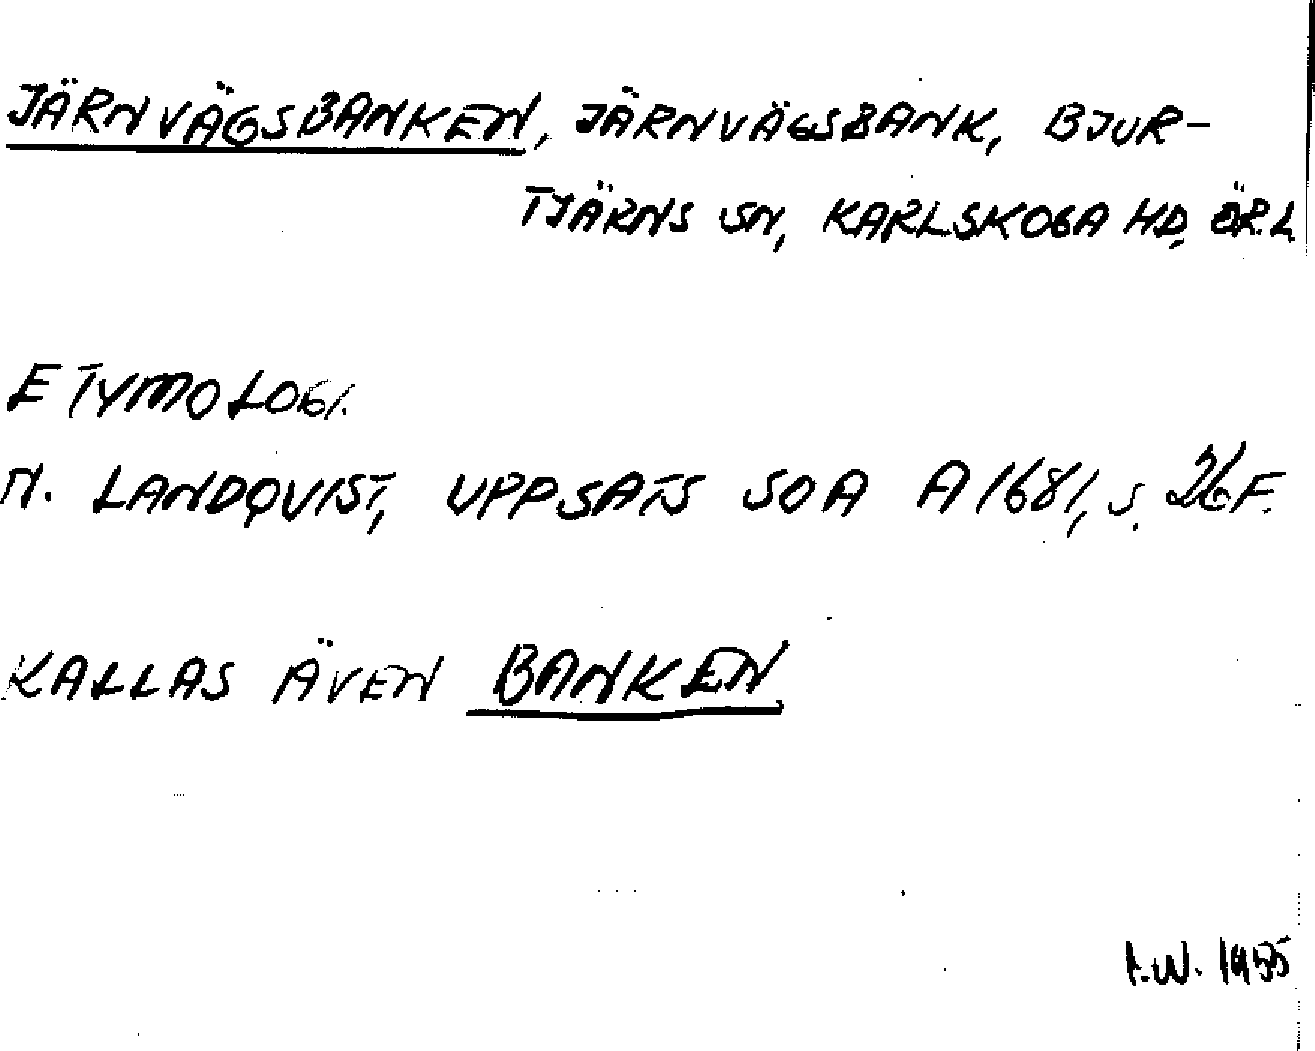 JÄRNVÄGSBANKEN, JÄRNVÄGSBANK, BJUR-
TJÄRNS SN, KARLSKOGA HD, ÖR. L.
ETYMOLOGI.
N. LANDQVIST, UPPSATS SOA A 1681, S. 26 F.
KALLAS ÄVEN BANKEN
I.W. 1985